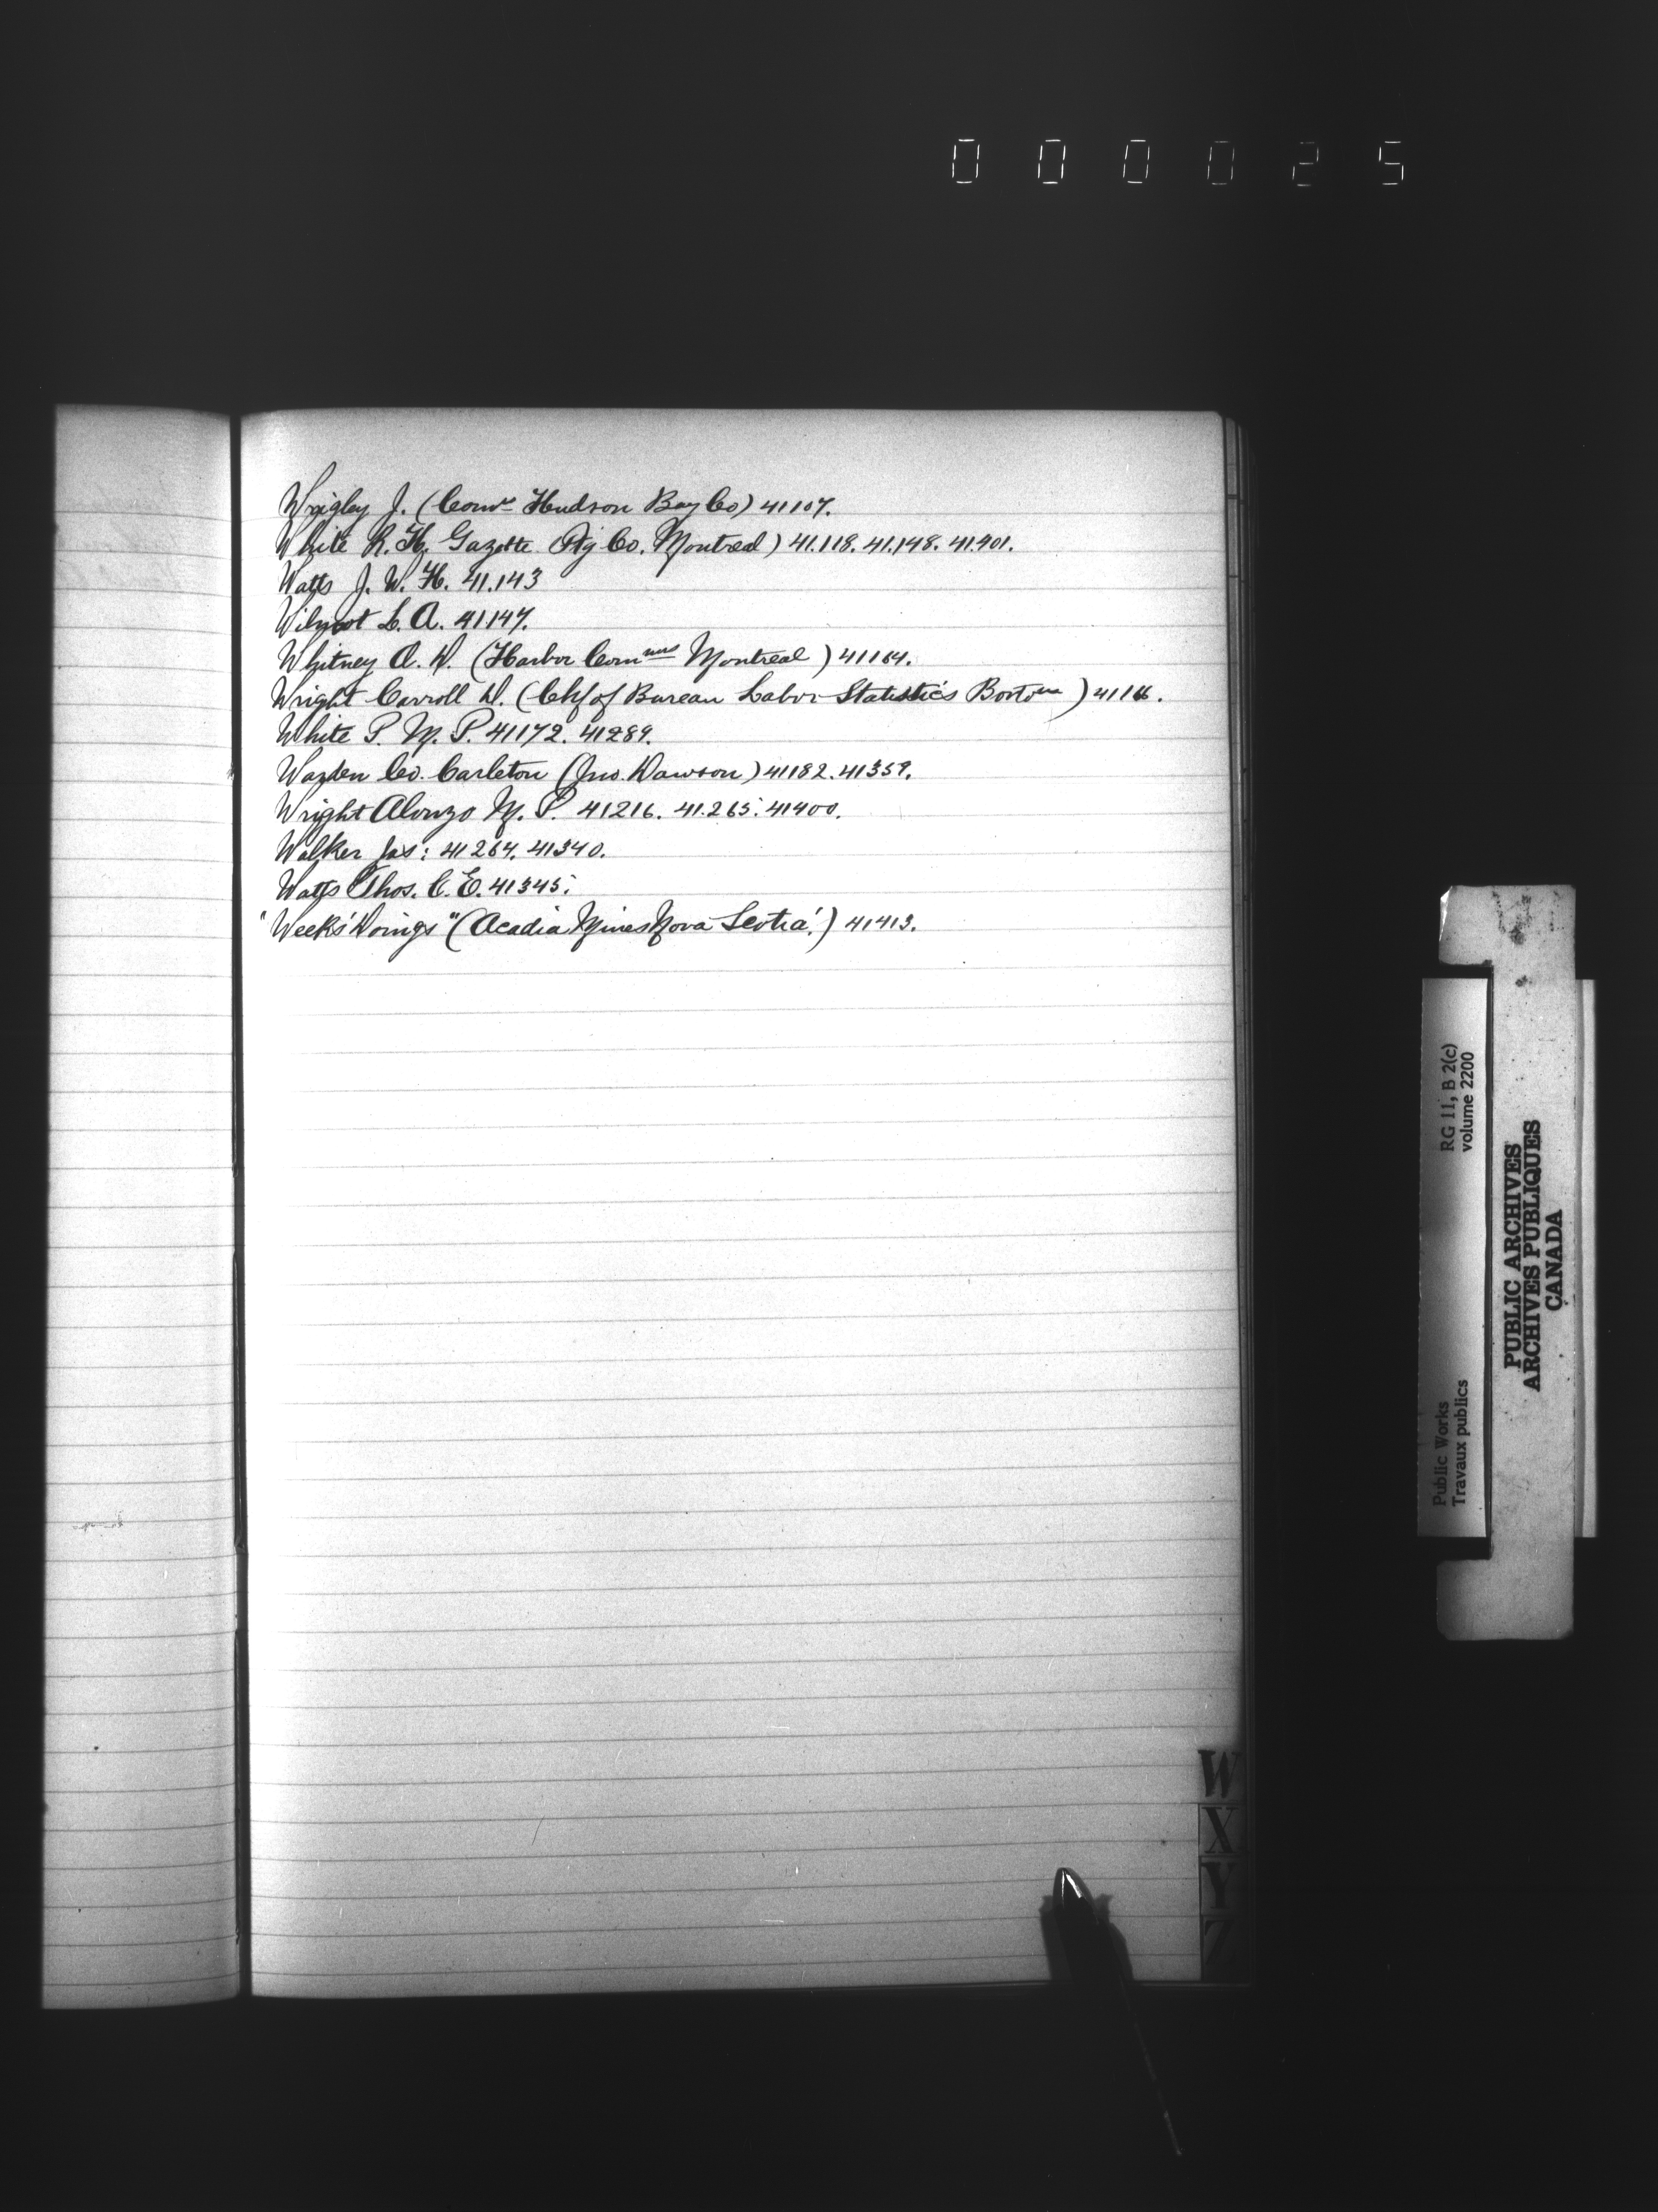 000025
Wrigley J. (Comr Hudson Bay Co) 41107.
White R. H. Gazette Ptg Co. Montreal) 41.118. 41.148. 41.401.
Watts J. W. H. 41.143
Wilmot L. A. 41147.
Whitney A. W. (Harbor Commrs Montreal) 41164.
Wright Carroll D. (Chf of Bureau Labor Statistics Boston)
White P. M. P. 41172. 41289.
Warden Co. Carleton (Jno. Dawson) 41182. 41359.
Wright Alonzo M. P. 41216. 41.265. 41400.
Walker Jas: 41264. 41340.
Watts Thos. C. E. 41345.
"Week's Doings" (Acadia Mines Nova Scotia.) 41413.
W
X
Y
Z
Public Works
Travaux publics
RG 11, B 2(c)
volume 2200
PUBLIC ARCHIVES
ARCHIVES PUBLIQUES
CANADA